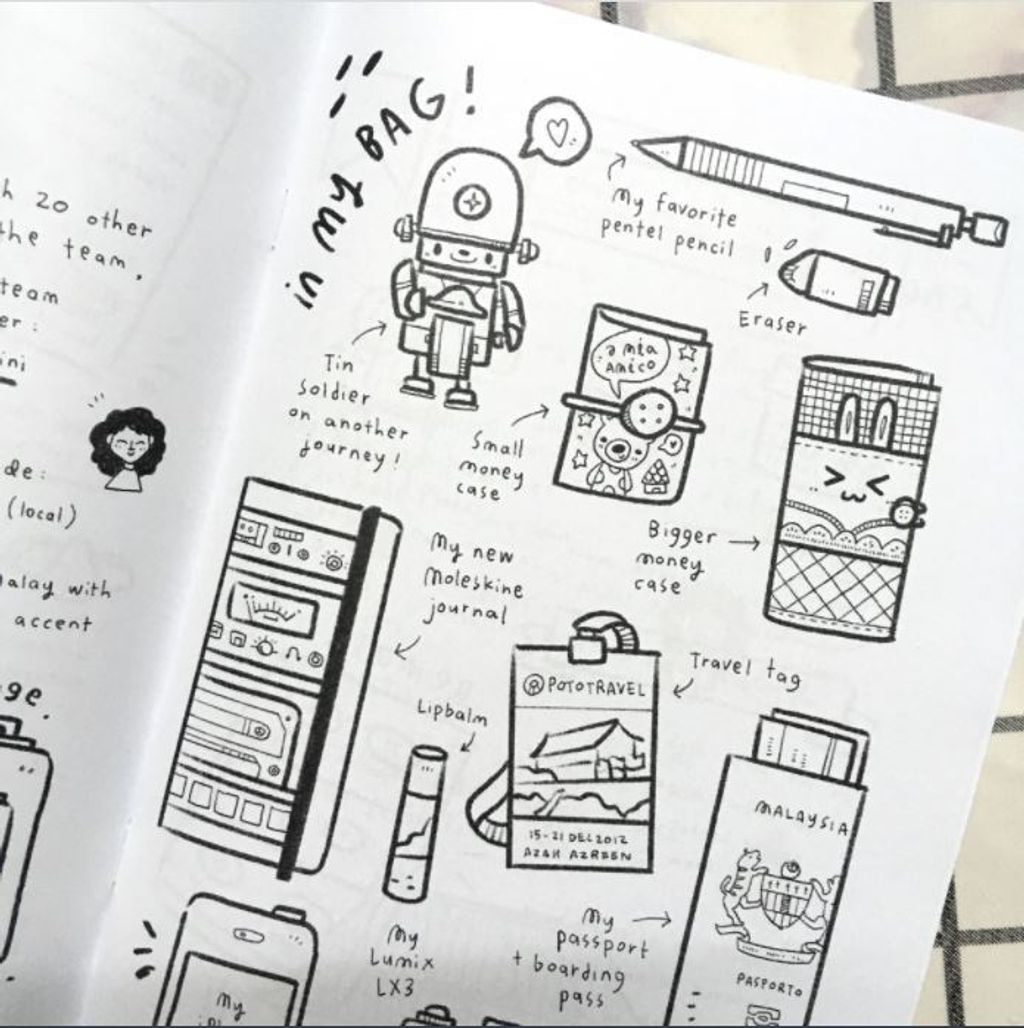 20 other
the team,
team
(local)
with
accent
in my BAG!
My favorite
pentel pencil
Eraser
Tin
soldier
on another
journey!
a mia
amico
Small
money
case
Bigger
money
case
My new
Moleskine
journal
Lipbalm
Travel tag
POTOTRAVEL
15-21 DEC 2012
AZAH AZREEN
MALAYSIA
My
passport
+ boarding
pass
PASPORTO
My
Lumix
LX3
My